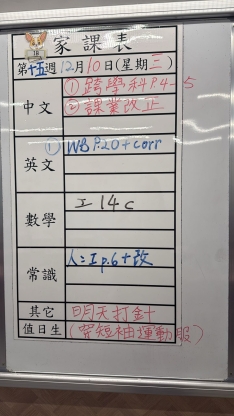 家課表
第十五週12月10日(星期三)
中文
①跨學科P.4-5
②課業改正
英文
①WB P.20+corr
數學
工14c
常識
人二工p.6+改
其它
明天打針
值日生
(穿短袖運動服)